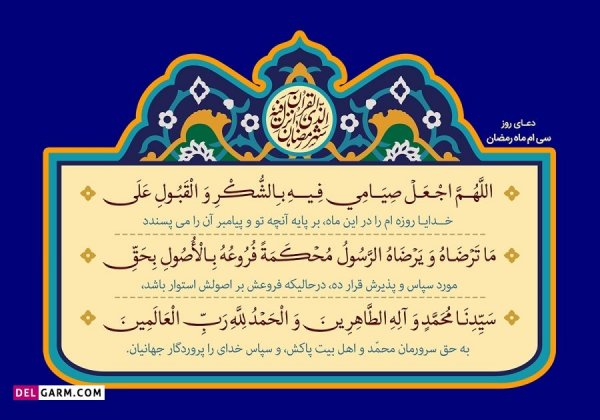 شهر رمضان الذی انزل فیه القرآن
دعـای روز
سی ام ماه رمضان
اللَّهُمَّ اجْعَلْ صِيَامِي فِيهِ بِالشُّكْرِ وَ الْقَبُولِ عَلَى
خدایا روزه ام را در این ماه، بر پایه آنچه تو و پیامبر آن را می پسندد
مَا تَرْضَاهُ وَ يَرْضَاهُ الرَّسُولُ مُحْكَمَةً فُرُوعُهُ بِالْأُصُولِ بِحَقِّ
مورد سپاس و پذیرش قرار ده، درحالیکه فروعش بر اصولش استوار باشد،
سَيِّدِنَا مُحَمَّدٍ وَ آلِهِ الطَّاهِرِينَ وَ الْحَمْدُ لِلَّهِ رَبِّ الْعَالَمِينَ
به حق سرورمان محمّد و اهل بیت پاکش، و سپاس خدای را پروردگار جهانیان.
DELGARM.COM